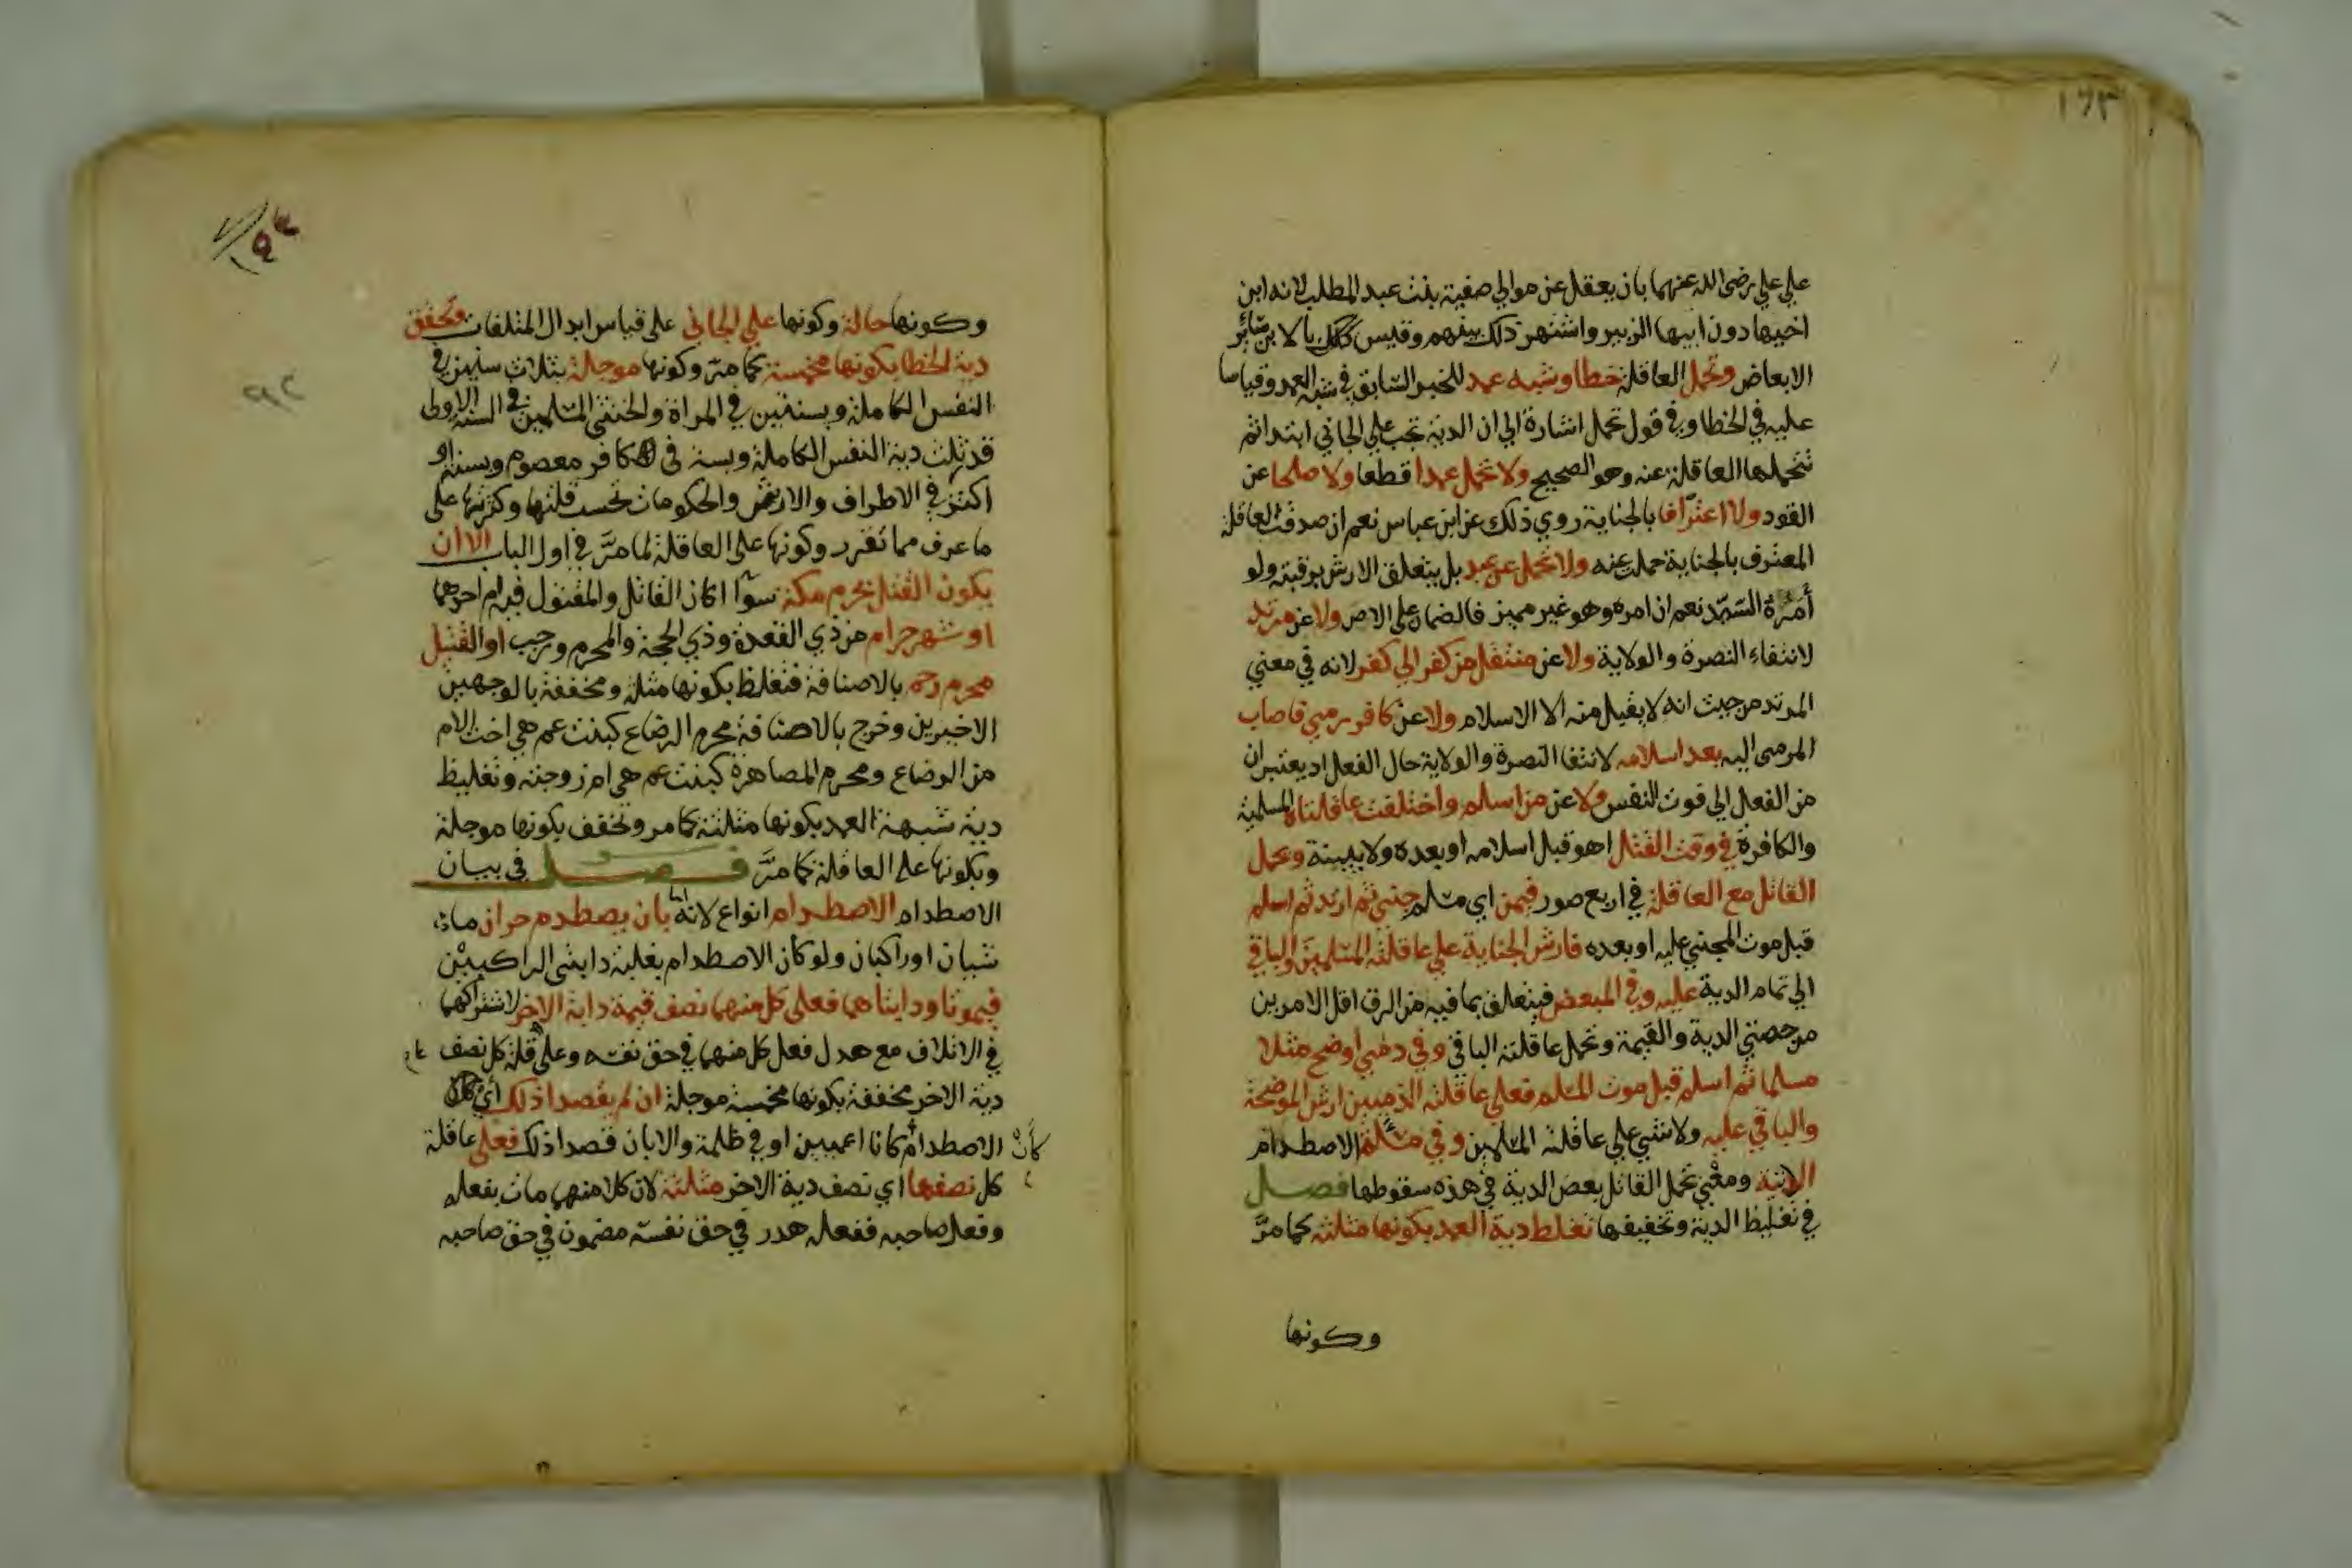 ١٦٣
علي علي رضي الله عنهما بان يعقل عن موالي صفية بنت عبد المطلب لانه ابن
اخيها دون ابيها الزبير واشتهر ذلك بينهم وقيس بالابن سائر
الابعاض وتحمل العاقلة خطا وشبه عمد للخبر السابق في شبه العمد وقياسا
عليه في الخطا وفي قول تحمل اشارة الي ان الدية تجب علي الجاني ابتدا ثم
تتحملها العاقلة عنه وهو الصحيح ولا تحمل عمدا قطعا ولا صلحا عن
القود ولا اعترافا بالجناية روي ذلك عن ابن عباس نعم ان صدقت العاقلة
المعترف بالجناية حملت عنه ولا تحمل عن عبد بل يتعلق الارش برقبته ولو
أمره السيد نعم ان امره وهو غير مميز فالضمان علي الامر ولا عن مرتد
لانتفاء النصرة والولاية ولا عن منتقل من كفر الي كفر لانه في معني
المرتد من حيث انه لا يقبل منه الا الاسلام ولا عن كافر رمي فاصاب
المرمي اليه بعد اسلامه لانتفا النصرة والولاية حال الفعل اذ يعتبران
من الفعل الي فوت النفس ولا عن من اسلم واختلفت عاقلتاه المسلمية
والكافرة في وقت القتل اهو قبل اسلامه او بعده ولا بينة وتحمل
القاتل مع العاقلة في اربع صور فيمن اي مسلم جني ثم ارتد ثم اسلم
قبل موت المجني عليه او بعده فارش الجناية علي عاقلته المسلمين والباقي
الي تمام الدية عليه وفي المبعض فيتعلق بما فيه من الرق اقل الامرين
من حصتي الدية والقيمة وتحمل عاقلته الباقي وفي ذمي اوضح مثلا
مسلما ثم اسلم قبل موت المسلم فعلي عاقلته الذميين ارش الموضحة
والباقي عليه ولا شي علي عاقلته المسلمين وفي مسئلة الاصطدام
الاتية ومعني تحمل القاتل بعض الدية في هذه سقوطها فصل
في تغليظ الدية وتخفيفها تغلظ دية العمد بكونها مثلثة كما مرَّ
وكونها
وكونها حالة وكونها علي الجاني علي قياس ابدال المتلفات وتخفف
دية الخطا بكونها مخمسة كما مرّ وكونها موجلة بثلاث سنين في
النفس الكاملة وبسنتين في المراة والخنثي المسلمين في السنة الاولى
قدر ثلث دية النفس الكاملة وبسنة في كافر معصوم وبسنة او
اكثر في الاطراف والاروش والحكومات تحسب قلتها وكثرتها علي
ما عرف مما تقرر وكونها علي العاقلة لما مرَّ في اول الباب الا ان
يكون القتل بحرم مكة سوآ اكان القاتل والمقتول فيه ام احدهما
او شهر حرام من ذي القعدة وذي الحجة والمحرم ورجب او القتيل
محرم رحم بالاضافة فتغلظ بكونها مثلثة ومخففة بالوجهين
الاخيرين وخرج بالاضافة محرم الرضاع كبنت عم هي اخت الام
من الرضاع ومحرم المصاهرة كبنت عم هي ام زوجته وتغليظ
دية شبه العمد بكونها مثلثة كما مر وتخفف بكونها موجلة
وبكونها علي العاقلة كما مرَّ فصل في بيان
الاصطدام الاصطدام انواع لانه اما بان يصطدم حران ما
شيان او راكبان ولو كان الاصطدام بغلبة دابتي الراكبين
فيموتا ودابتاهما فعلي كل منهما نصف قيمة دابة الاخر لاشتراكهما
في الاتلاف مع هدر فعل كل منهما في حق نفسه وعلي قلة كل نصف
دية الاخر مخففة بكونها مخمسة موجلة ان لم يقصدا ذلك أي
الاصطدام كأن كانا اعميين او في ظلمة والا بان قصدا ذلك فعلي عاقلة
كل نصفها اي نصف دية الاخر مثلثة لان كلا منهما مات بفعله
وفعل صاحبه ففعله هدر في حق نفسه مضمون في حق صاحبه